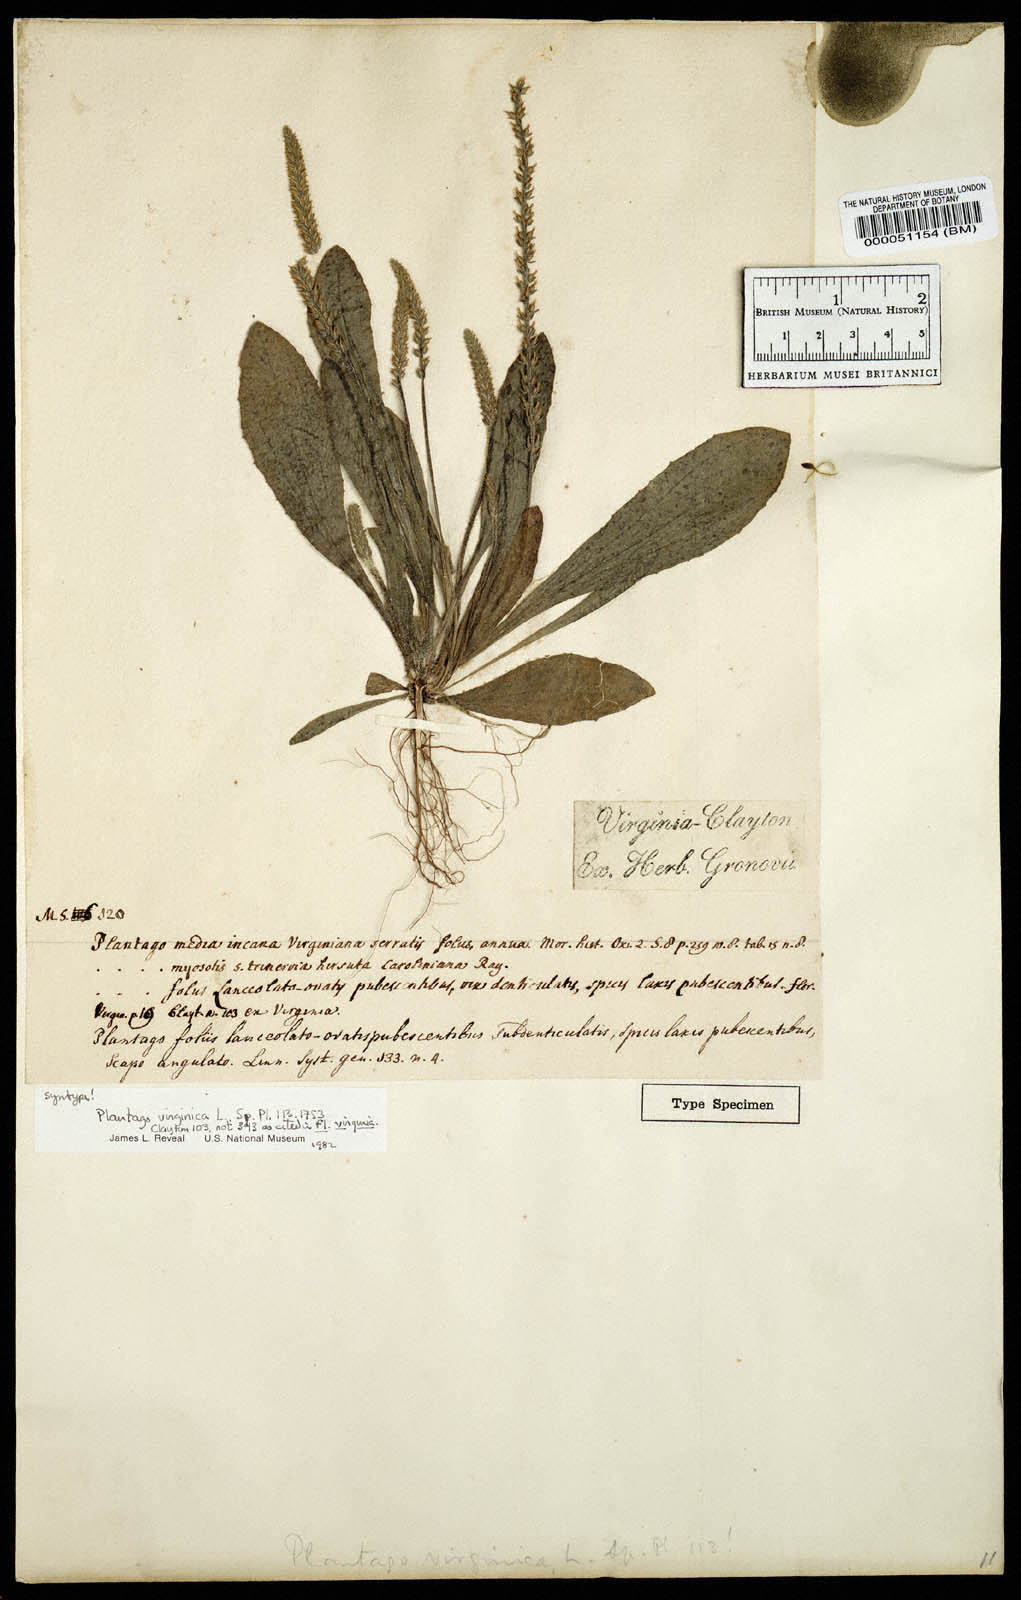 THE NATURAL HISTORY MUSEUM, LONDON
DEPARTMENT OF BOTANY
000051154 (BM)
1 2
BRITISH MUSEUM (NATURAL HISTORY)
1 2 3 4 5
HERBARIUM MUSEI BRITANNICI
Virginia-Clayton
Ex. Herb. Gronovii
M.S. 320
Plantago media incana Virginiana serratis folus, annua. Mor. hist. Oxi. 2. S. 8 p. 259 m. 8. tab. 15 n. 8.
. . . . myosotis s. trinervia hirsuta Caroliniana Ray.
. . . folus Lanceolato-ovatis pubescentibus, vix denticulatis, spicis laxis pubescentibus. flor.
Virgin. p. 16 Clayt. n. 103 ex Virginia.
Plantago foliis lanceolato-ovatis pubescentibus Subdenticulatis, spicis laxis pubescentibus,
Scapo angulato. Linn. Syst. gen. 133. n. 9.
syntype!
Plantago virginica L., Sp. Pl. 113. 1753
Clayton 103, not 343 as cited in Fl. virginic.
James L. Reveal U.S. National Museum
1982
Type Specimen
Plantago virginica L. Sp. Pl 113!
11